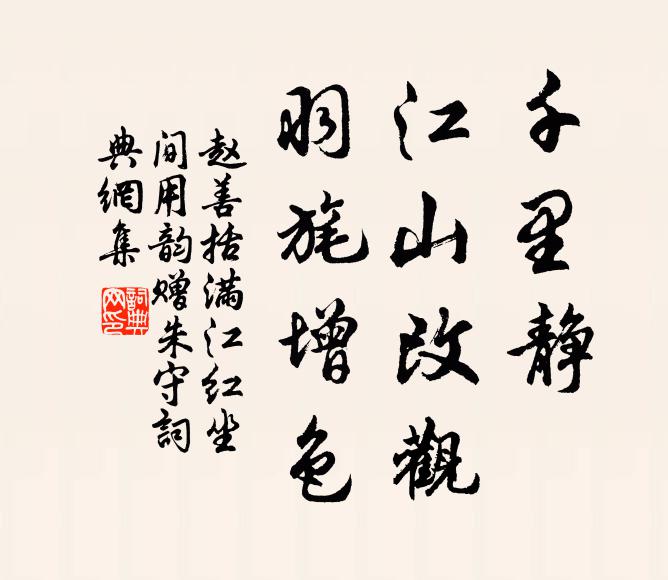 千里静
江山改觀
羽旄增色
赵善括满江红坐
间用韵赠朱守詞
典網集
詞典网印